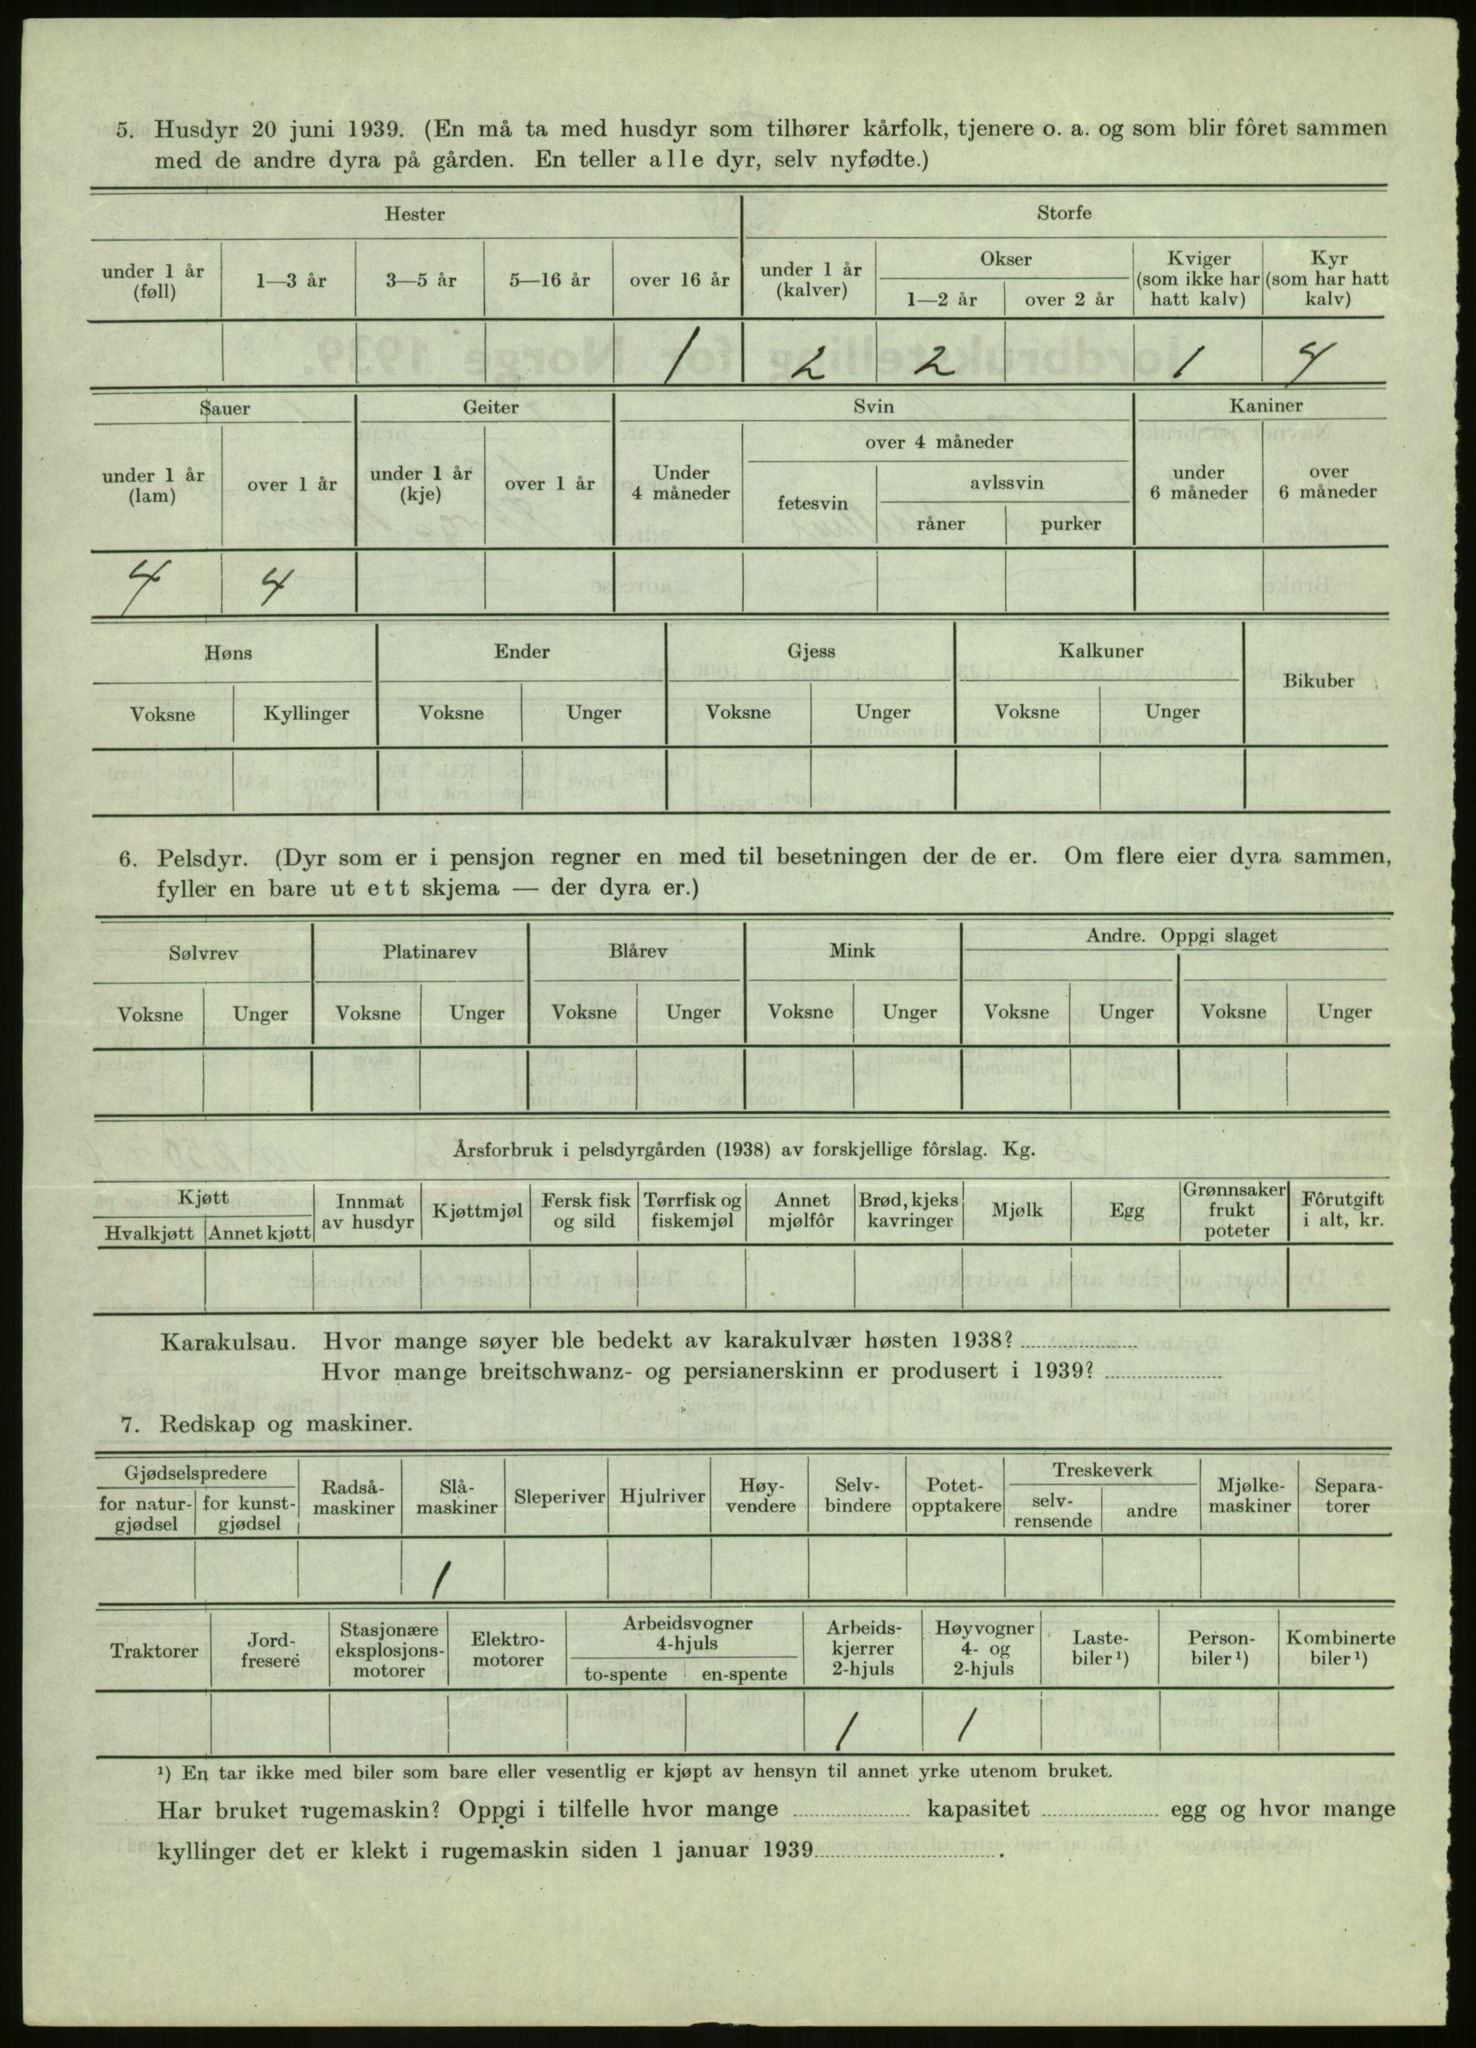 5. Husdyr 20 juni 1939. (En må ta med husdyr som tilhører kårfolk, tjenere o. a. og som blir fôret sammen
med de andre dyra på gården. En teller alle dyr, selv nyfødte.)
Hester Storfe
under 1 år (føll) 1—3 år 3—5 år 5—16 år over 16 år under 1 år (kalver) Okser 1—2 år over 2 år Kviger (som ikke har hatt kalv) Kyr (som har hatt kalv)
1 2 2 1 4
Sauer Geiter Svin Kaniner
under 1 år (lam) over 1 år under 1 år (kje) over 1 år Under 4 måneder over 4 måneder fetesvin avlssvin råner purker under 6 måneder over 6 måneder
4 4
Høns Ender Gjess Kalkuner Bikuber
Voksne Kyllinger Voksne Unger Voksne Unger Voksne Unger
6. Pelsdyr. (Dyr som er i pensjon regner en med til besetningen der de er. Om flere eier dyra sammen,
fyller en bare ut ett skjema — der dyra er.)
Sølvrev Platinarev Blårev Mink Andre. Oppgi slaget
Voksne Unger Voksne Unger Voksne Unger Voksne Unger Voksne Unger Voksne Unger
Årsforbruk i pelsdyrgården (1938) av forskjellige fôrslag. Kg.
Kjøtt Hvalkjøtt Annet kjøtt Innmat av husdyr Kjøttmjøl Fersk fisk og sild Tørrfisk og fiskemjøl Annet mjølfôr Brød, kjeks kavringer Mjølk Egg Grønnsaker frukt poteter Fôrutgift i alt, kr.
Karakulsau. Hvor mange søyer ble bedekt av karakulvær høsten 1938?
Hvor mange breitschwanz- og persianerskinn er produsert i 1939?
7. Redskap og maskiner.
Gjødselspredere for natur-gjødsel for kunst-gjødsel Radså-maskiner Slå-maskiner Sleperiver Hjulriver Høy-vendere Selv-bindere Potet-opptakere Treskeverk selv-rensende andre Mjølke-maskiner Separa-torer
1
Traktorer Jord-fresere Stasjonære eksplosjons-motorer Elektro-motorer Arbeidsvogner 4-hjuls to-spente en-spente Arbeids-kjerrer 2-hjuls Høyvogner 4- og 2-hjuls Laste-biler ¹) Person-biler ¹) Kombinerte biler ¹)
1 1
¹) En tar ikke med biler som bare eller vesentlig er kjøpt av hensyn til annet yrke utenom bruket.
Har bruket rugemaskin? Oppgi i tilfelle hvor mange kapasitet egg og hvor mange
kyllinger det er klekt i rugemaskin siden 1 januar 1939 .